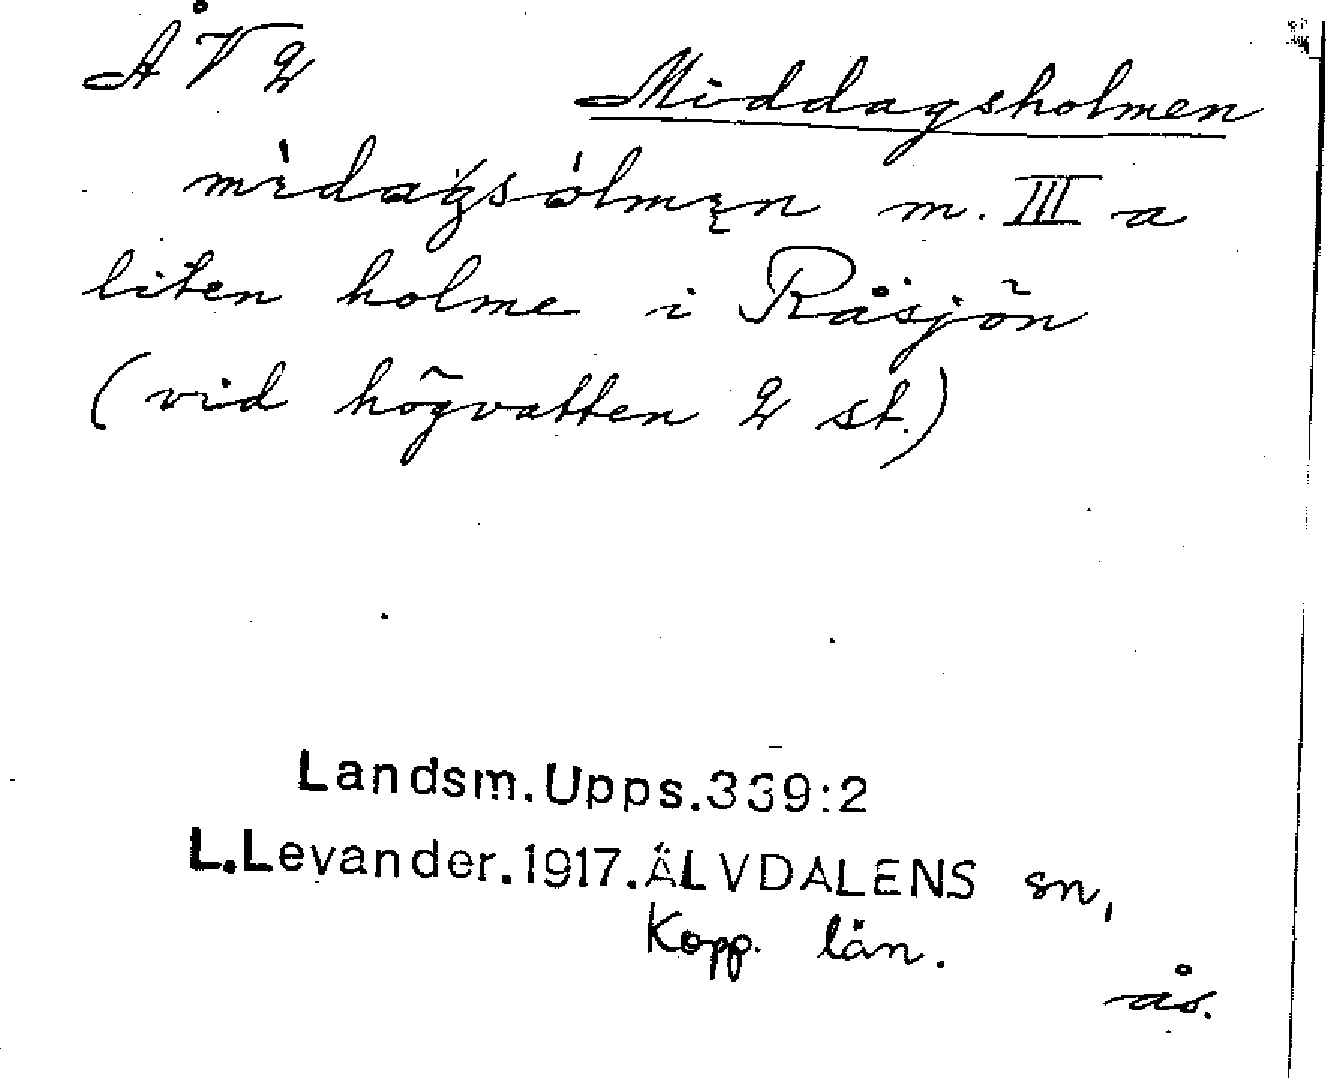 ÅV 2
Middagsholmen
m. III a
liten holme i Råsjön
(vid högvatten 2 st.)
Landsm.Upps.339:2
L.Levander.1917.ÄLVDALENS sn,
Kopp. län.
ås.